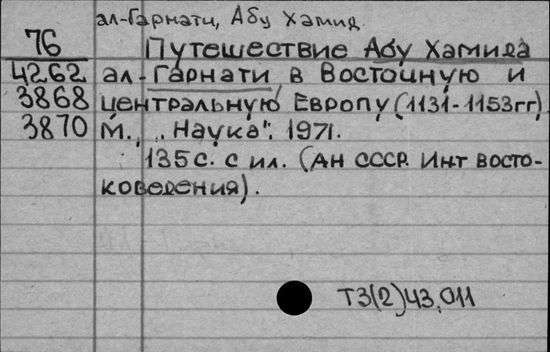 ал-Гарнати, Абу Хамид.
76 Путешествие Абу Хамида
4262 ал-Гарнати в Восточную и
3868 центральную Европу (1131-1153гг)
3870 М., „Наука", 1971.
135 с. с ил. (АН СССР. Инт восто-
коведения).
Т3(2)43,011